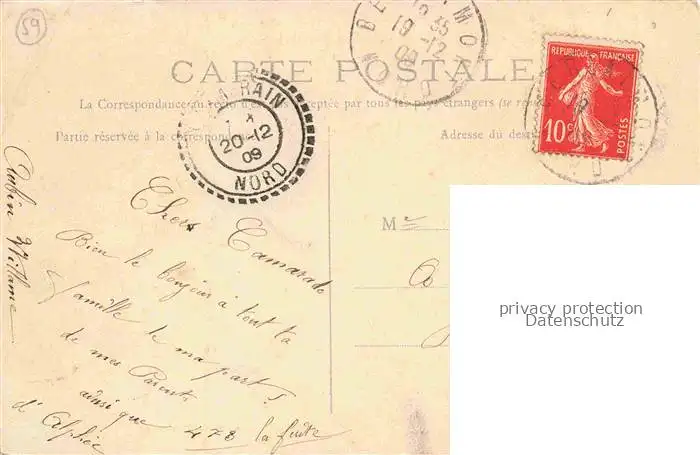 59
CARTE POSTALE
La Correspondance au recto n'est pas acceptée par tous les pays étrangers (se
Partie réservée à la correspondance
Adresse du
RAIN
20-12
09
NORD
35
19-12
09
REPUBLIQUE FRANÇAISE
10c
POSTES
M
privacy protection
Datenschutz
Chers Camarade
Bien le bonjour à tout ta
famille de ma part
de mes Parents
ainsi que
d'Alphée
478 la fuite
Aubin Willame